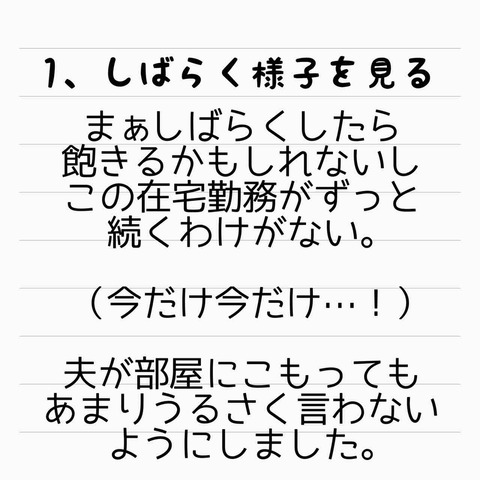 1、しばらく様子を見る
まぁしばらくしたら
飽きるかもしれないし
この在宅勤務がずっと
続くわけがない。
（今だけ今だけ…！）
夫が部屋にこもっても
あまりうるさく言わない
ようにしました。